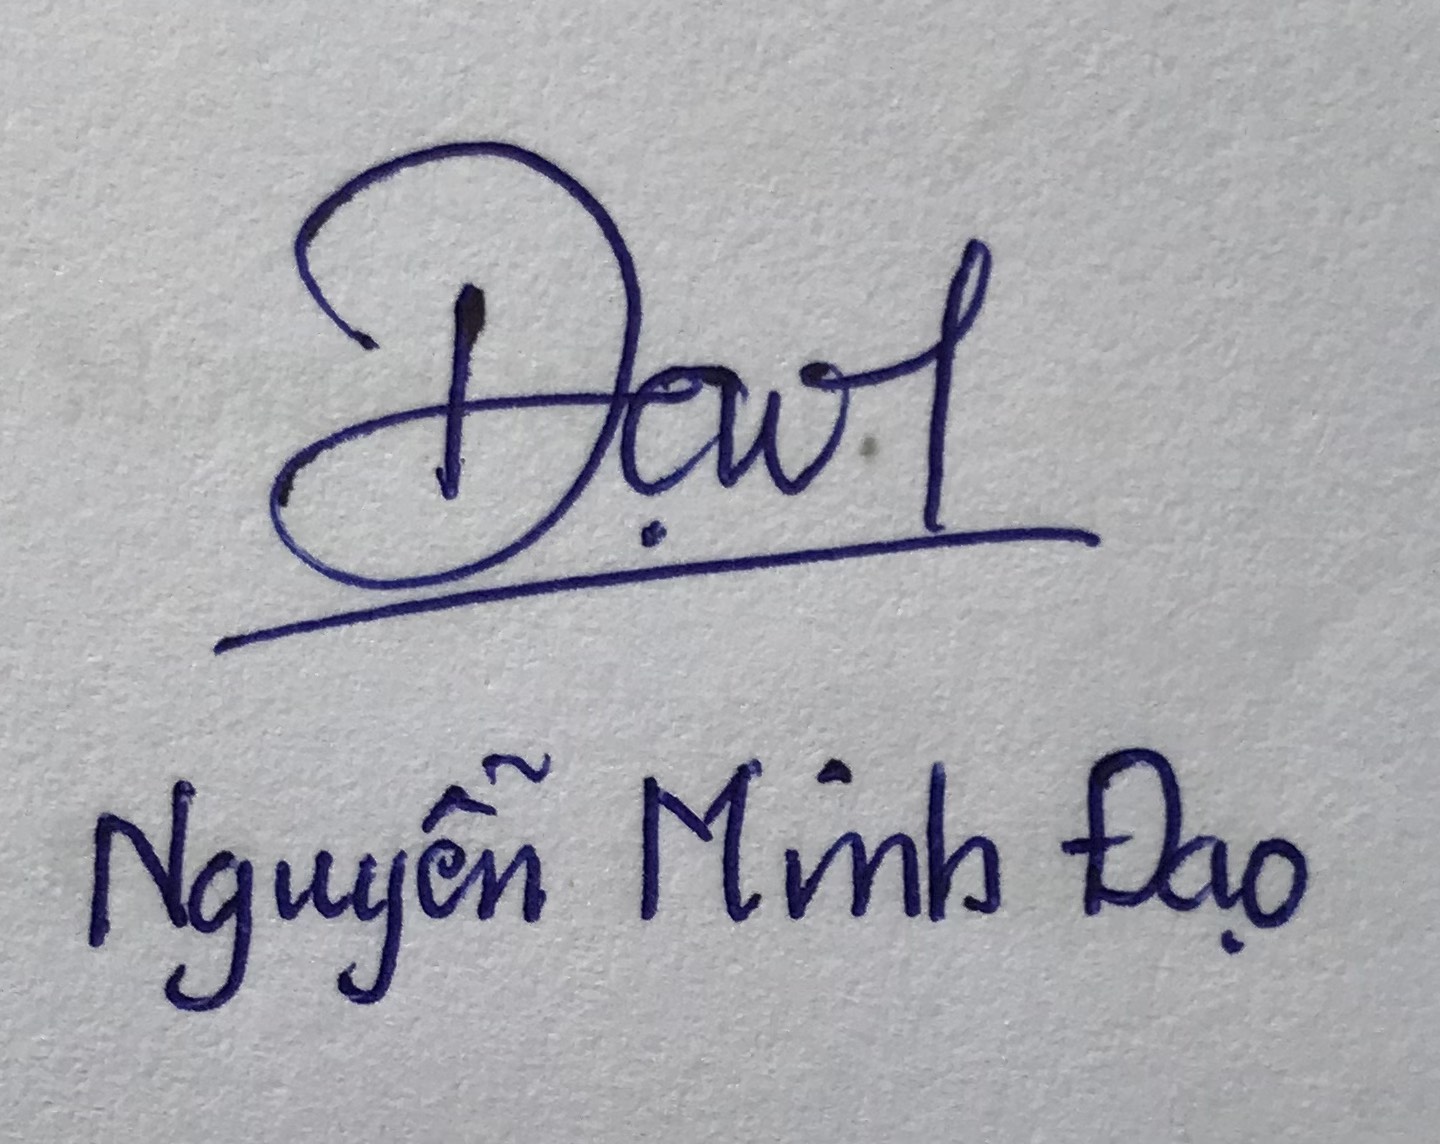 Nguyễn Minh Đạo